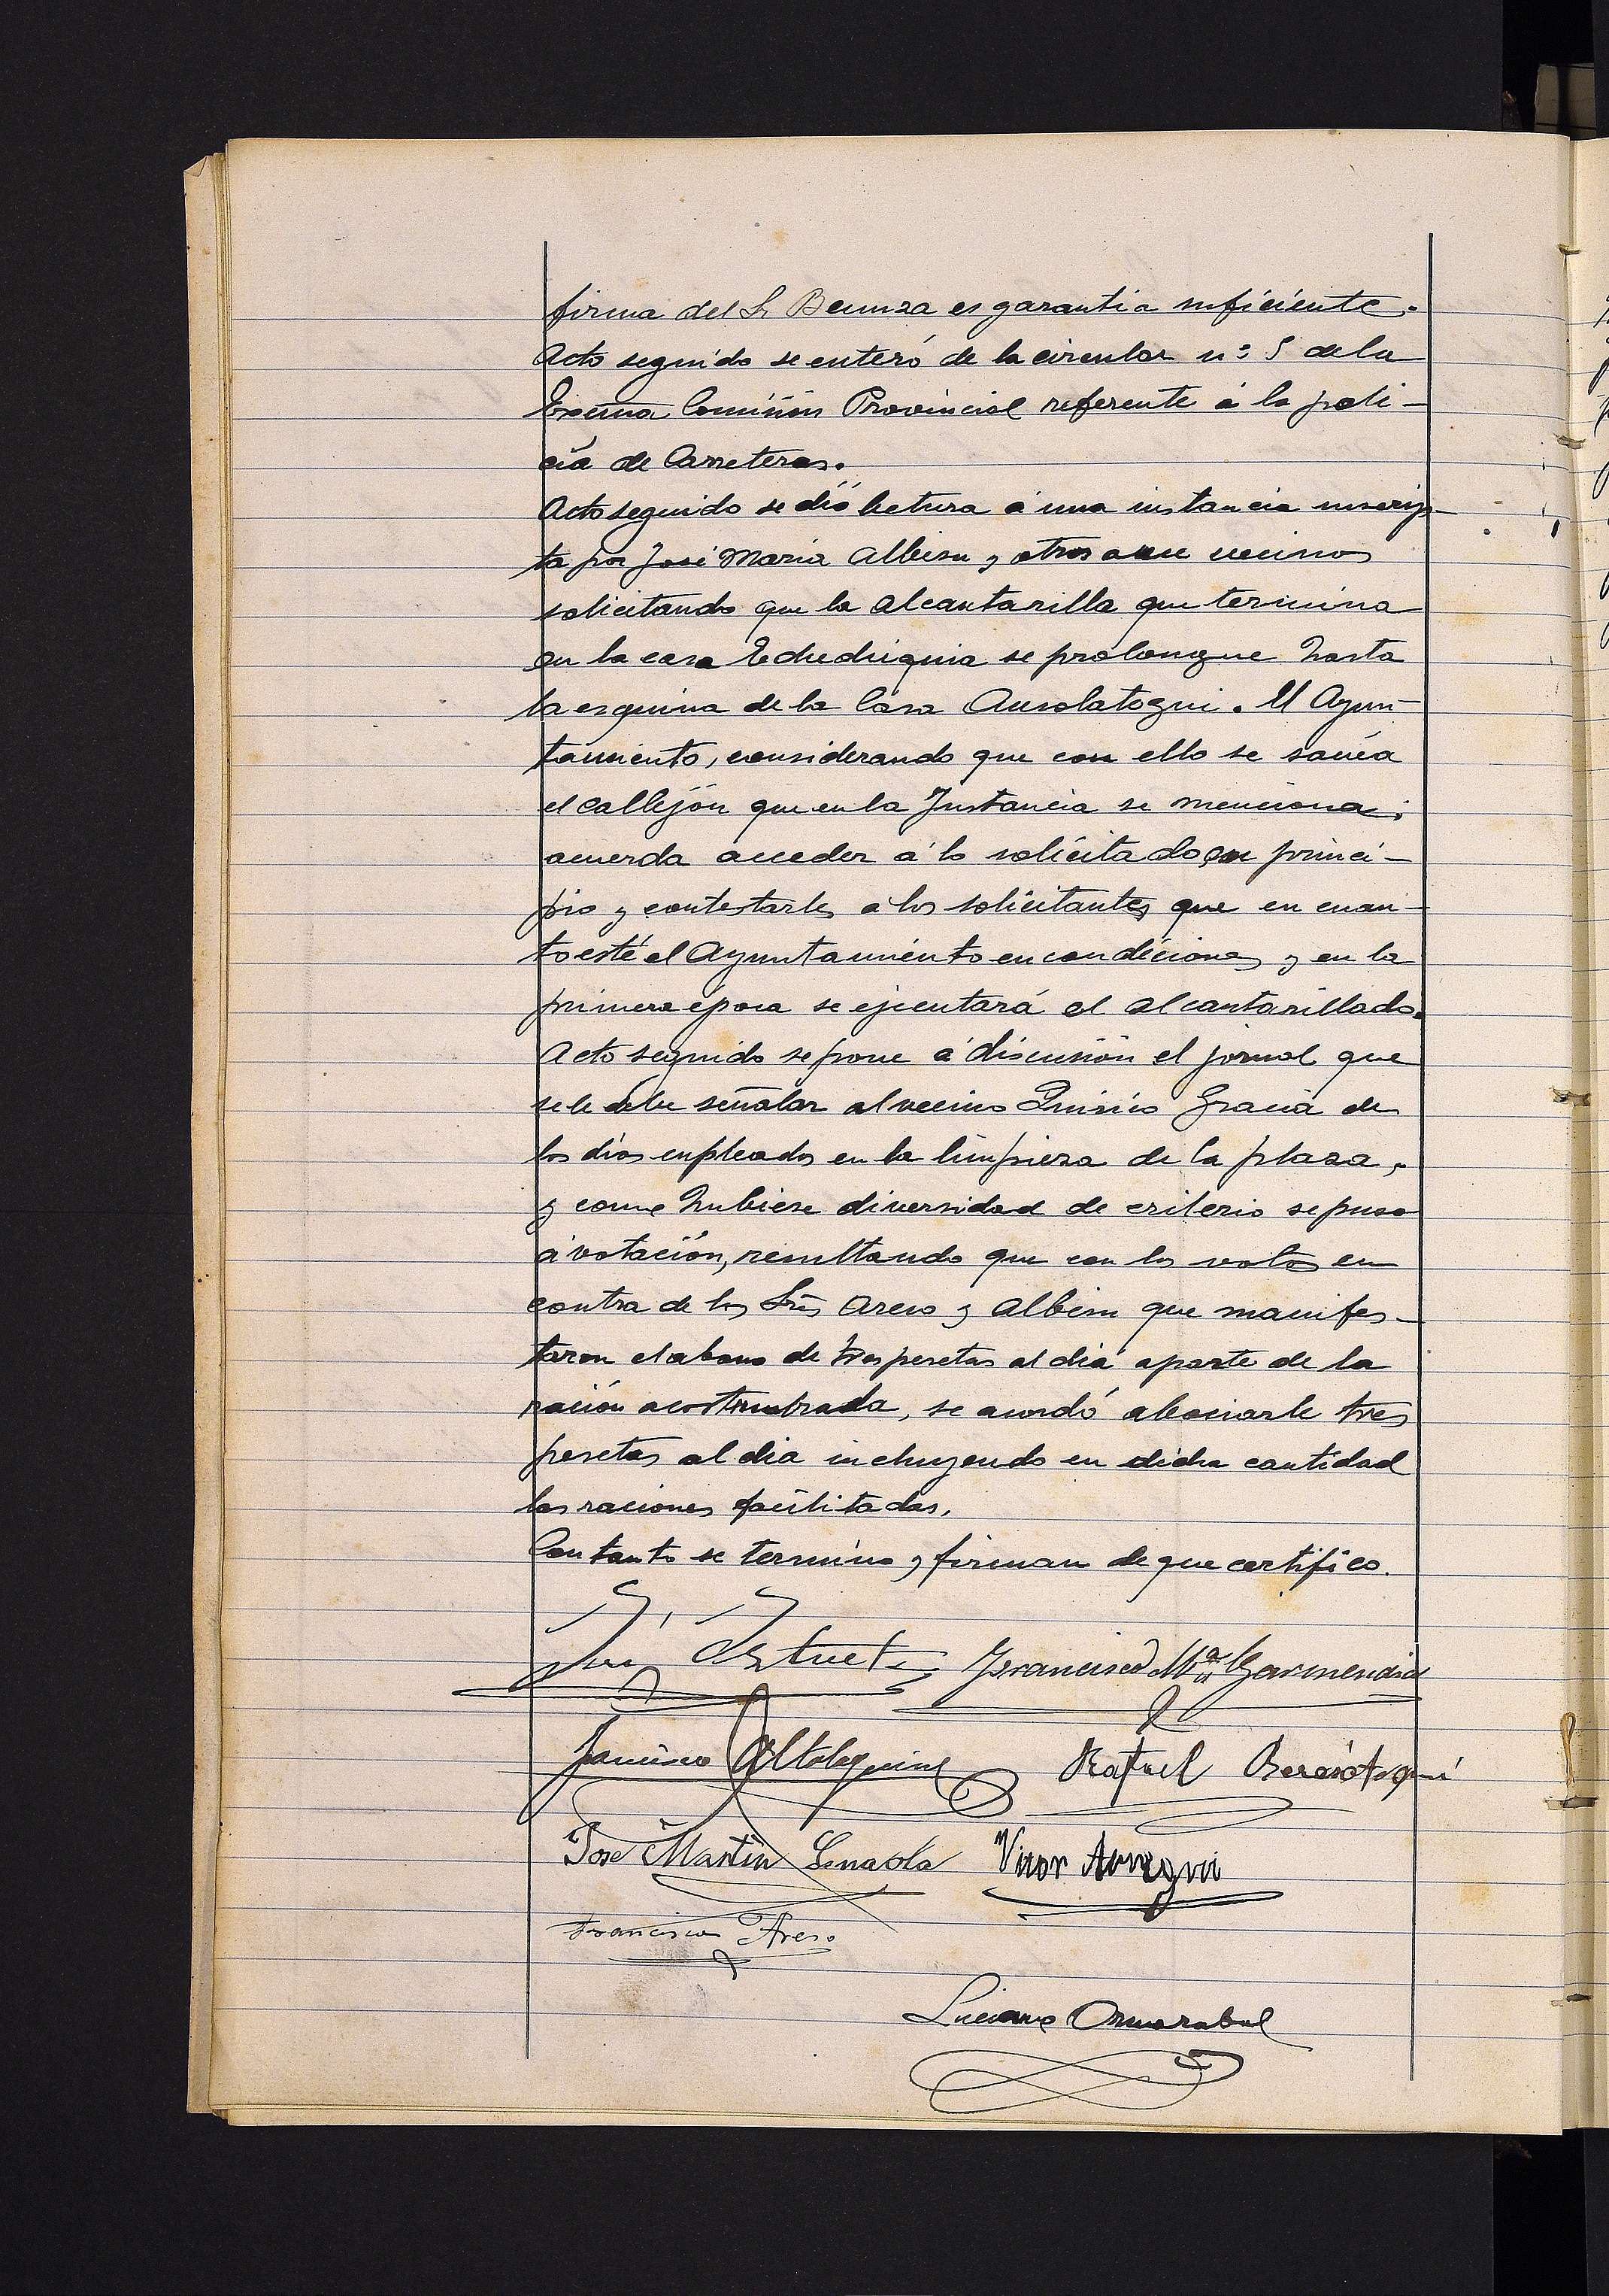 firma del Sr Beunza es garantia suficiente.
Acto seguido se enteró de la circular nº 5 de la
Excma Comisión Provincial referente á la poli-
cía de Carreteras.
Acto seguido se dió lectura á una instancia suscrip-
ta por José Maria Albisu y otros vecinos
solicitando que la alcantarilla que termina
en la casa se prolongue hasta
la esquina de la Casa. El Ayun-
tamiento, considerando que con ello se sanéa
el callejón que en la Instancia se menciona;
acuerda acceder á lo solicitado en princi-
pio y contestarles a los solicitantes que en cuan-
to esté el Ayuntamiento en condiciones y en la
primera época se ejecutará el alcantarillado.
Acto seguido se pone á discusión el jornal que
se le debe señalar al vecino Quirico Gracia de
los dias enpleados en la limpieza de la plaza,
y como hubiese diversidad de criterio se puso
á votación, resultando que con los votos en
contra de los Srs Areso y Albisu que manifes-
taron el abono de tres pesetas al dia aparte de la
ración acostumbrada, se acordó abonarle tres
pesetas al dia incluyendo en dicha cantidad
las raciones facilitadas.
Con tanto se termino y firman de que certifico.
Francisco Mª Garmendia
Rafael Berasategui
José Martin
Francisco Areso
Luciano Ormazabal